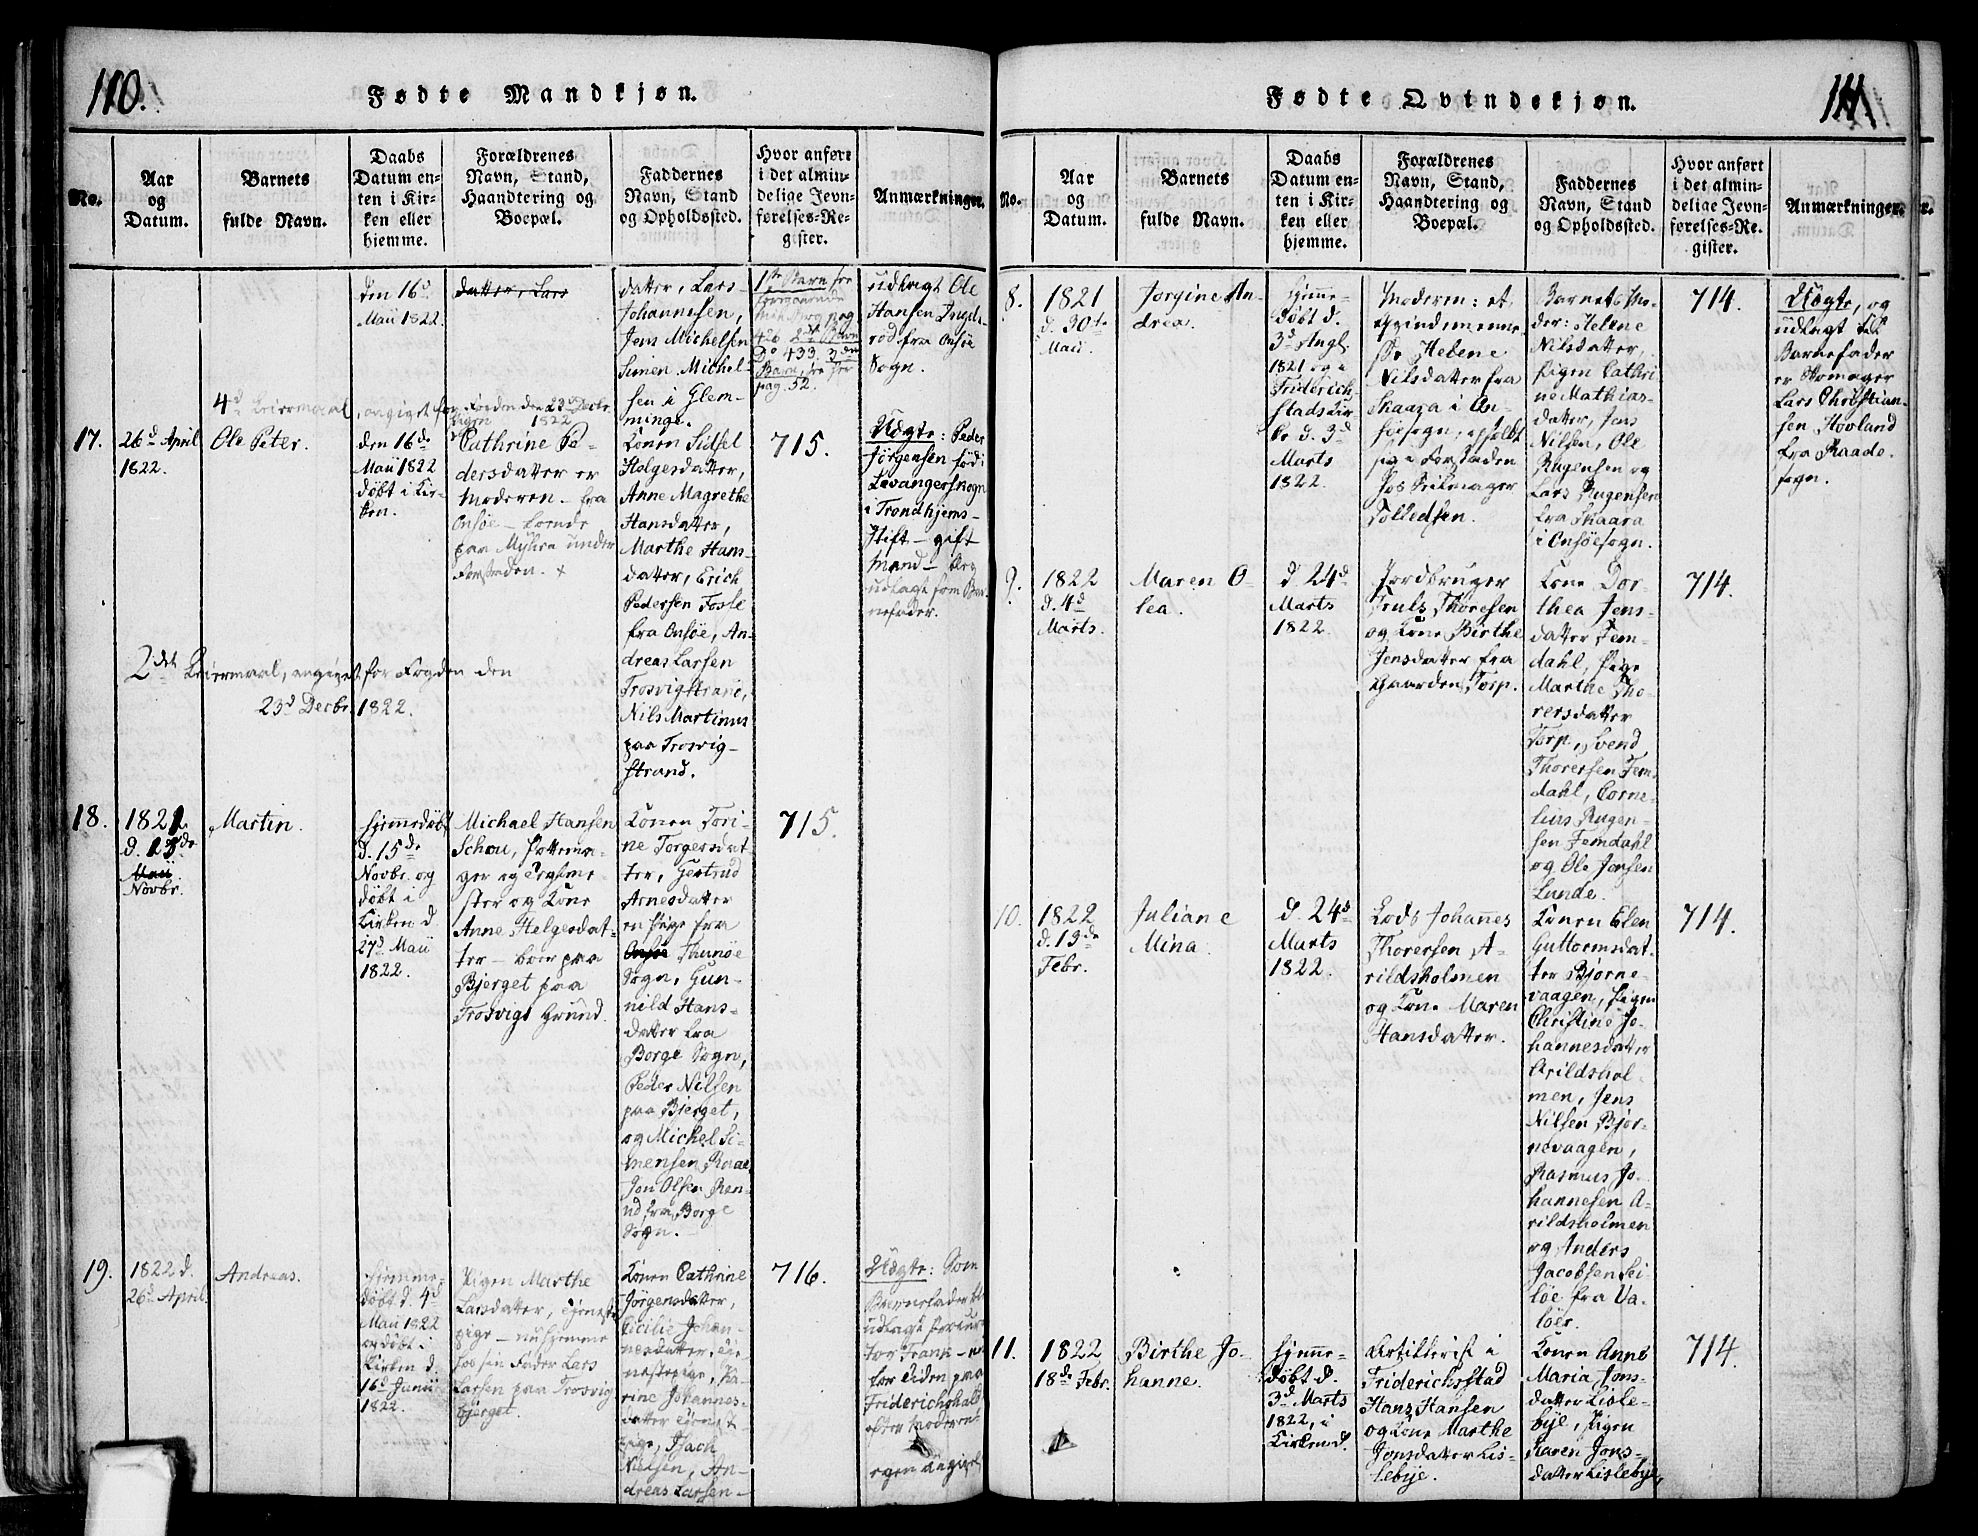 110.
Fødte Mandkjøn.
No.
Aar
og
Datum.
Barnets
fulde Navn.
Daabs
Datum en-
ten i Kir-
ken eller
hjemme.
Forældrenes
Navn, Stand,
Haandtering og
Boepæl.
Faddernes
Navn, Stand
og Opholdssted.
Hvor anført
i det almin-
delige Jevn-
førelses-Re-
gister.
Anmærkninger.
den 16d
Maii 1822
datter, Lars
datter, Lars
Johannesen,
Jens Michelsen
Simen Michel-
sen i Glem-
minge.
1ste Barn see
pag
426 2det Barn
Do 433. 3die
Barn, see
pag. 52.
udlagt Ole
Hansen Ingels-
rød fra Onsøe
Sogn.
4d Leiermaal, angivet for Fogden den 23d Decbr.
1822
17.
26d April
1822.
Ole Peter.
den 16de
Maii 1822
døbt i Kir-
ken.
Pigen
Cathrine Pe-
dersdatter er
Moderen - fra
Onsøe -
paa Myhra under
Forstaden. x
Konen Sidsel
Holgersdatter,
Anne Magrethe
Hansdatter,
Marthe Hans-
datter, Erich
Pedersen Fosle
fra Onsøe, An-
dreas Larsen
Trosvigstrand,
Nils Martinus
paa Trosvig-
strand.
715.
Uægte: Peder
Jørgensen født i
Levanger sogn
i Trondhjems-
Stift - gift
Mand - og
udlagt som Bar-
nefader.
2det Leiermaal, angivet for Fogden den
23d Decbr. 1822.
18.
1821
d. 13de
Maii
Novbr.
Martin.
Hjemmedøbt
d. 15de
Novbr. og
døbt i
Kirken d.
27d Maii
1822.
Michael Hansen
Schou, Pottema-
ger og
ster og Kone
Anne Helgesdat-
ter - boer paa
Bjerget paa
Trosvigs Grund.
Konen Tori-
ne Torgersdat-
ter, Gertrud
Arnesdatter
en Pige fra
Onsøe Thunøe
Sogn, Gun-
nild Hans-
datter fra
Borge Sogn,
Peder Nilsen
paa Bjerget,
og Michel Si-
mensen
Jon Olsen
fra Borge
Sogn.
715.
19.
1822 d.
26d April.
Andreas.
Hjemme-
døbt d. 4d
Maii 1822
og døbt i
Kirken d.
16d Junii
1822.
Pigen Marthe
Larsdatter, tjeneste
pige - nu hjemme
hos sin Fader Lars
Larsen paa Trosvig
bjerget.
Konen Cathrine
Jørgensdatter,
Cicilie Johan-
nesdatter, tje-
nestepige, Ka-
rine Johannes-
datter tjeneste
pige, Isach
Nielsen, An-
dreas Larsen -
716.
Uægte: Som
Barnefader er
udlagt
Frank -
for tiden paa
Friderichshald
efter Moderen-
egen Angivel
111.
Fødte Qvindekjøn.
No.
Aar
og
Datum.
Barnets
fulde Navn.
Daabs
Datum en-
ten i Kir-
ken eller
hjemme.
Forældrenes
Navn, Stand,
Haandtering og
Boepæl.
Faddernes
Navn, Stand
og Opholdssted.
Hvor anført
i det almin-
delige Jevn-
førelses-Re-
gister.
Anmærkninger.
8.
1821
d. 30te
Maii.
Jørgine An-
drea.
Hjemme-
døbt d.
3d Augl.
1821 og i
Friderich-
stads Kir-
ke d. 3d
Marts
1822.
Moderen: et
Qvindemenne-
ske Helene
Nilsdatter fra
Skaara i On-
søe sogn, opholdt
sig i Forstaden
hos Feilmager
Tolledsen.
Barnets Mo-
der: Helene
Nilsdatter,
Pigen Cathri
ne Mathias-
datter, Jens
Nilsen, Ole
Rugensen og
Lars Rugensen
fra Skaara
i Onsøesogn.
714.
Uægte, og
udlagt til
Barnefader
er Skomager
Lars Christian-
sen Hovland
fra Raade-
sogn.
9.
1822
d. 4d
Marts.
Maren O-
lea.
d. 24d
Marts
1822.
Jordbruger
Truls Thoresen
og Kone Birthe
Jensdatter fra
Gaarden Torp.
Kone Dor-
thea Jens-
datter Fem-
dahl, Pige
Marthe Tho-
rersdatter
Torp, Svend
Thorersen Fem-
dahl, Corne-
lius Rugen-
sen Femdahl
og Ole Jensen
Lunde.
714.
10.
1822
d. 19de
Febr.
Juliane
Mina.
d. 24d
Marts
1822.
Lods Johannes
Thorersen A-
rildsholmen
og Kone Maren
Hansdatter.
Konen Elen
Guttormsdat-
ter Bjørne-
vaagen, Pigen
Christine Jo-
hannesdatter
Arildshol-
men, Jens
Nilsen Bjør-
nevaagen,
Rasmus Jo-
hannesen A-
rildsholmen
og Anders
Jacobsen Sei-
løe fra Va-
løer.
714.
11.
1822
18de Febr.
Birthe Jo-
hanne.
Hjemme-
døbt d.
3d Marts
1822, i
Kirken d.
Artillerist i
Friderichsstad
Hans Hansen
og Kone Marthe
Jonsdatter Lis-
lebye.
Konen Anne
Maria Jons-
datter Lisle-
bye, Pigen
Karen Jons-
datter Lislebye,
714.